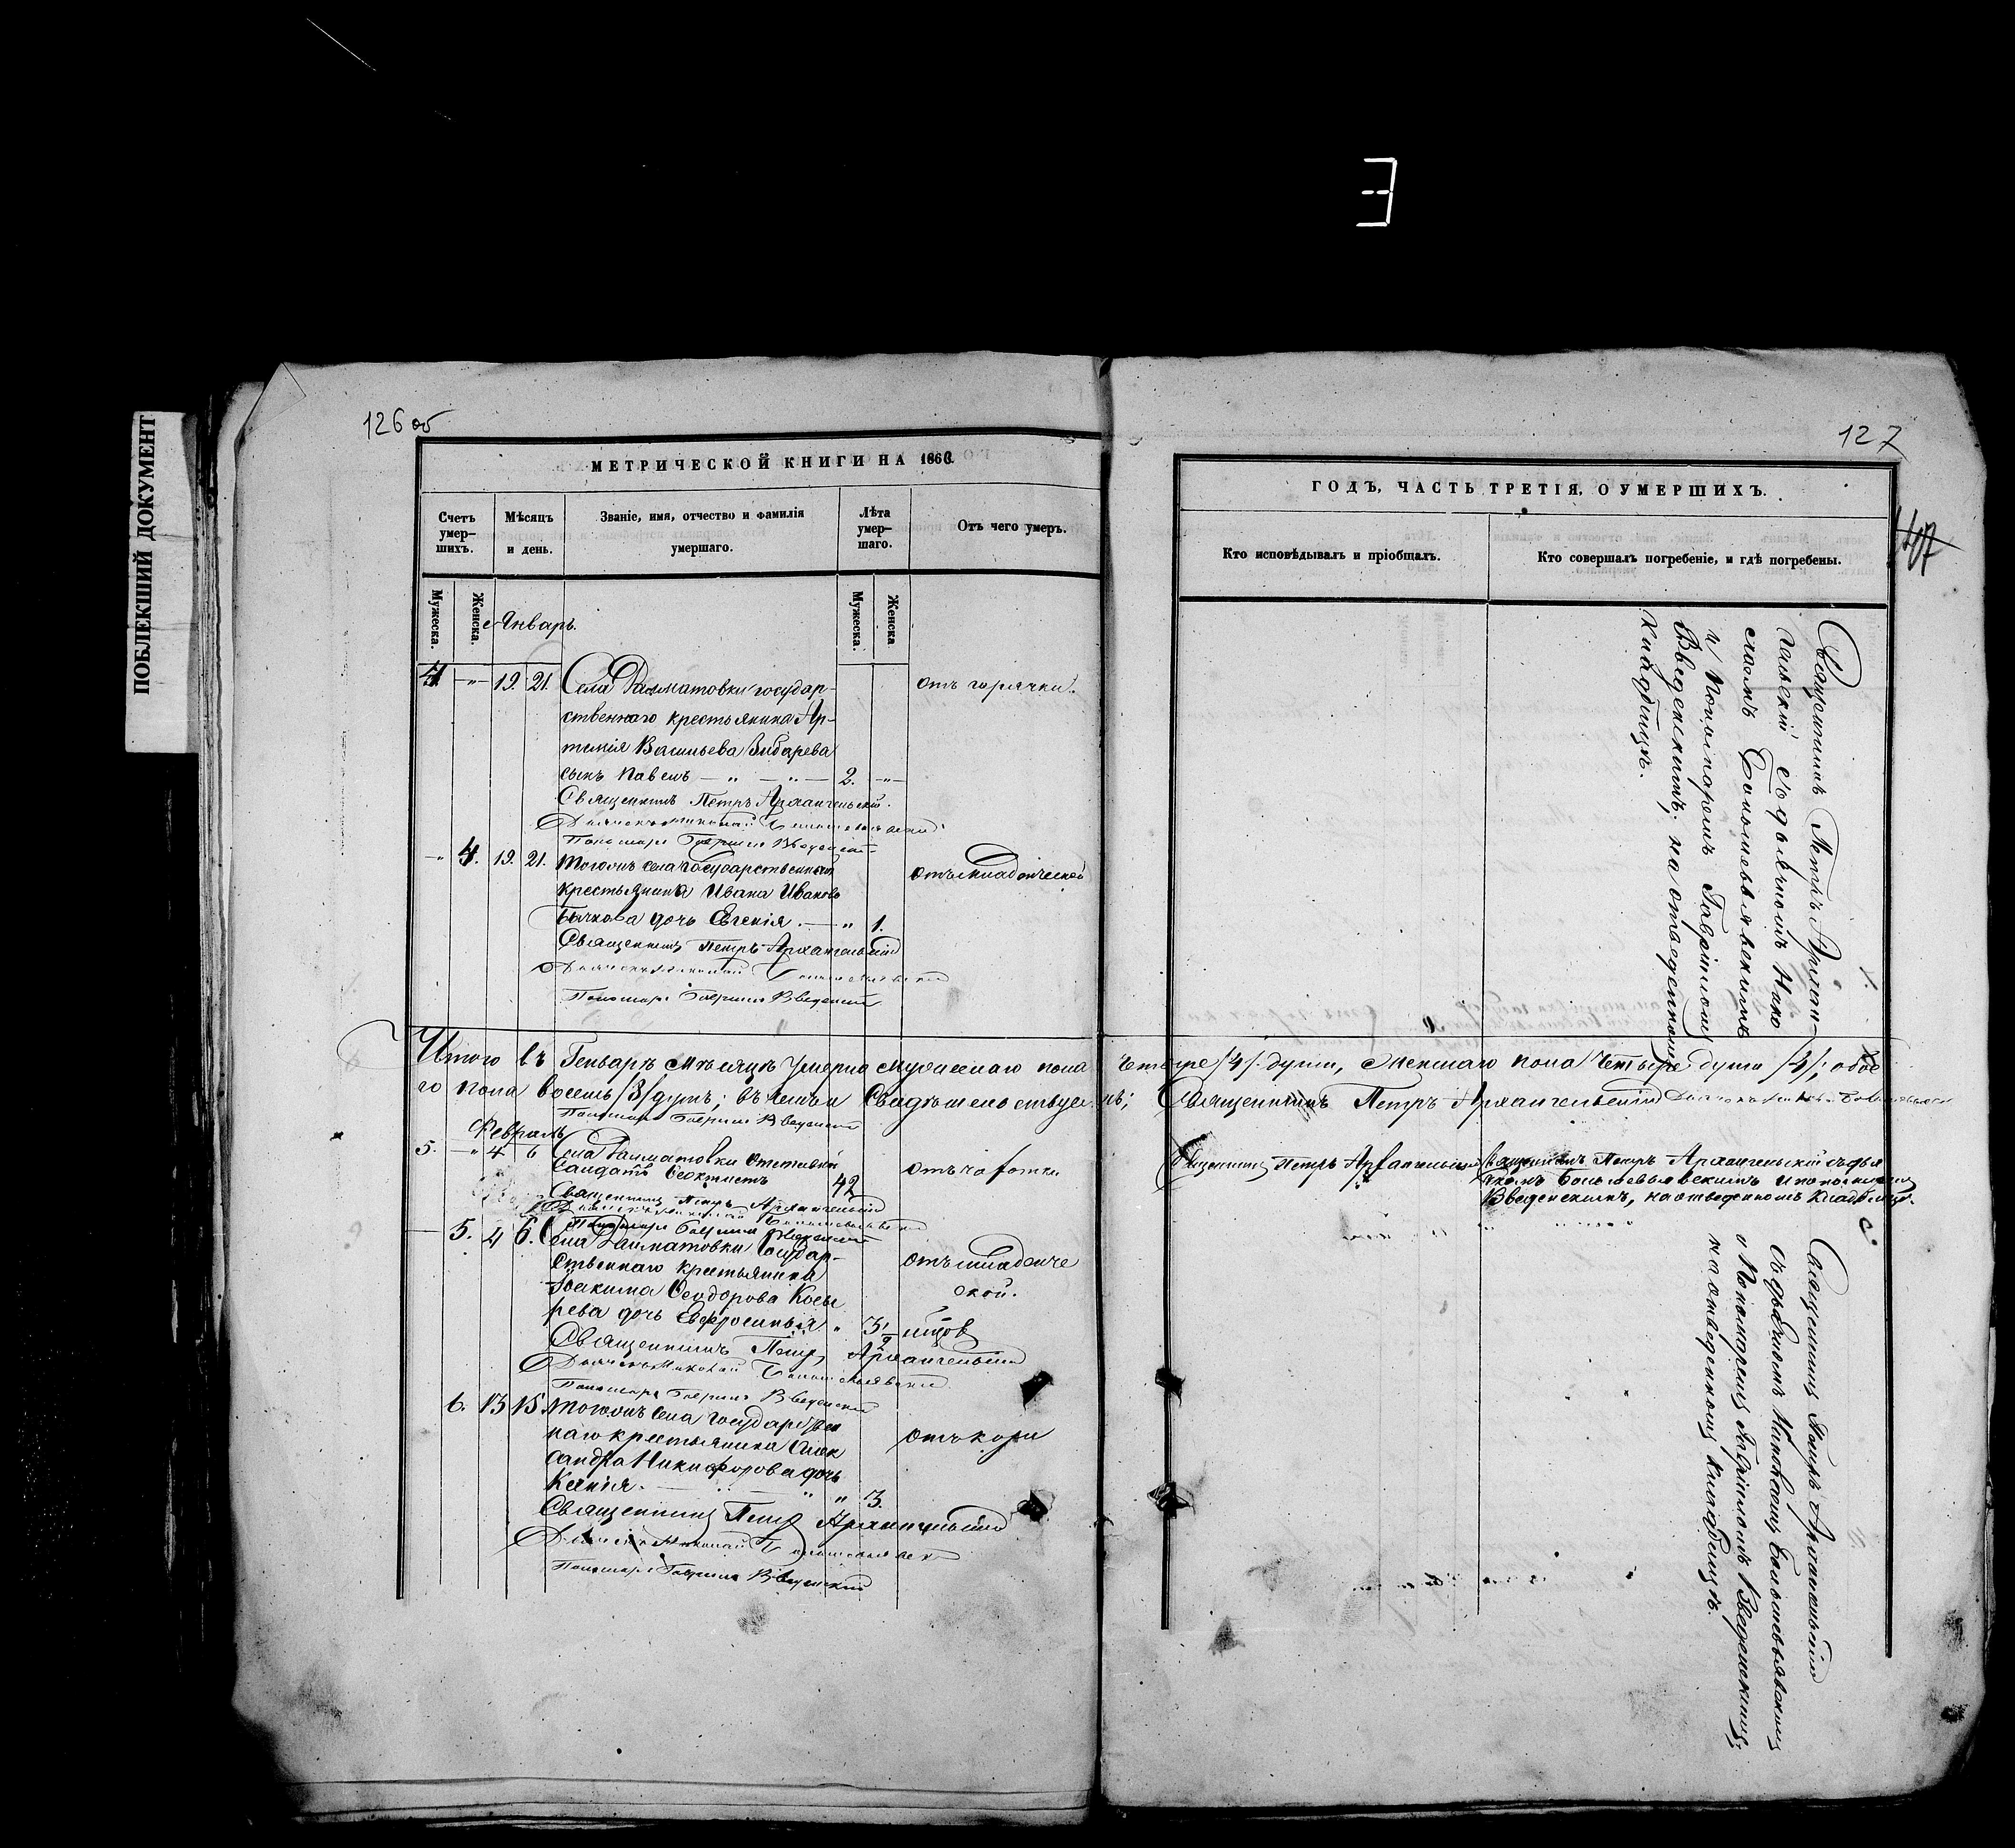 ПОБЛЕКШИЙ ДОКУМЕНТ
126 об
МЕТРИЧЕСКОЙ КНИГИ НА 1866
Счетъ умер-шихъ.
Мѣсяцъ и день.
Званіе, имя, отчество и фамилія умершаго.
Лѣта умер-шаго.
Отъ чего умеръ.
Мужеска.
Женска.
Мужеска.
Женска
Январь.
4 — 19. 21. Села Далматовки государ- отъ горячки.
ственнаго крестьянина Ар-
темія Васильева
сынъ Павелъ — „ — „ — 2. —„—
Священникъ Петръ Архангельскій.
Дьячекъ Николай
Пономарь Гавріилъ Введенскій
„ 4. 19. 21. Тогожъ села Государственнаго отъ младенческой
крестьянина Ивана Иванова
Бычкова дочь Евгенія. — „ 1.
Священникъ Петръ Архангельскій
Дьячекъ Николай
Пономарь Гавріилъ Введенскій
Итого въ Генварѣ мѣсяцѣ умерло мужескаго пола
го пола восемь /8/ душъ; въ чемъ и Свидѣтельствуемъ;
Пономарь Гавріилъ Введенскій
Февраль
5. — „ 4 6 Села Далматовки отставной отъ чахотки
Салдатъ Ѳеоктистъ 42
Священникъ Петръ Архангельскій
Дьячекъ Николай
Пономарь Гавріилъ Введенскій
— 5. 4 6. Села Далматовки Государ- отъ младенче
ственнаго крестьянина ской.
Іоакима Ѳеодорова Косы
рева дочь Евфросинья „ 3
Священникъ Петръ Архангельскій
Дьячекъ Николай
Пономарь Гавріилъ Введенскій
6. 13 15 Тогожъ села государствен
наго крестьянина Алек отъ кори
сандра Никифорова дочь
Ксенія. — „ „ 3.
Священникъ Петръ Архангельскій
Дьячекъ Николай
Пономарь Гавріилъ Введенскій
127
ГОДЪ, ЧАСТЬ ТРЕТІЯ, О УМЕРШИХЪ.
Кто исповѣдывалъ и пріобщалъ.
Кто совершалъ погребеніе, и гдѣ погребены.
Священникъ Петръ Архан-
гельскій съ дьячкомъ Нико
лаемъ
и Пономаремъ Гавріиломъ
Введенскимъ, на отведенномъ
кладбищѣ.
четыре /4/ души, женскаго пола четыре души /4/; обое
Священникъ Петръ Архангельскій
Священникъ Петръ Архангельскій
Священникъ Петръ Архангельскій съ дья
чкомъ и пономаремъ
Введенскимъ, на отведенномъ кладбищѣ.
Священникъ Петръ Архангельскій
съ дьячкомъ Николаемъ
и Пономаремъ Гавріиломъ Введенскимъ,
на отведенномъ кладбищѣ.